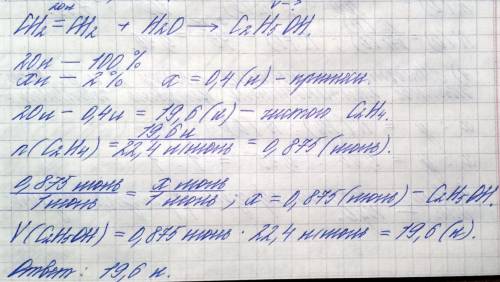 20л V-?
CH2=CH2 + H2O → C2H5OH.
20л — 100%
xл — 2% x = 0,4 (л) – примеси.
20л – 0,4л = 19,6 (л) – чистого C2H4.
n(C2H4) = 19,6л / 22,4 л/моль = 0,875 (моль).
0,875 моль / 1 моль = x моль / 1 моль ; x = 0,875 (моль) – C2H5OH.
V(C2H5OH) = 0,875 моль · 22,4 л/моль = 19,6 (л).
Ответ: 19,6 л.